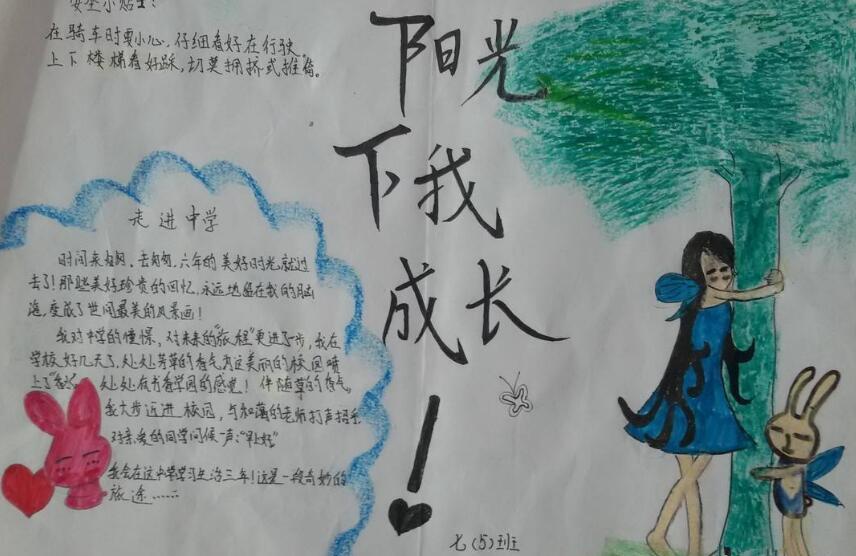 安全小贴士:
在骑车时要小心,仔细看好在行驶。
上下楼梯看好踩,切莫拥挤式推搡。
阳光
下我
成长
!
走进中学
时间来匆匆,去匆匆,六年的美好时光就过
去了!那些美好珍贵的回忆,永远地留在我的脑
海,变成了世间最美的风景画!
我对中学的憧憬,对未来的“旅程”更进了步,我在
学校好几天了,处处芳草的香气为这美丽的校园喷
上了 处处有书香学园的感觉!伴随草的香气。
我大步迈进校园,与和蔼的老师打声招乎
对亲爱的同学问候一声:“早上好”
我会在这中学学习生活三年!这是一段奇妙的
旅途……
七(5)班